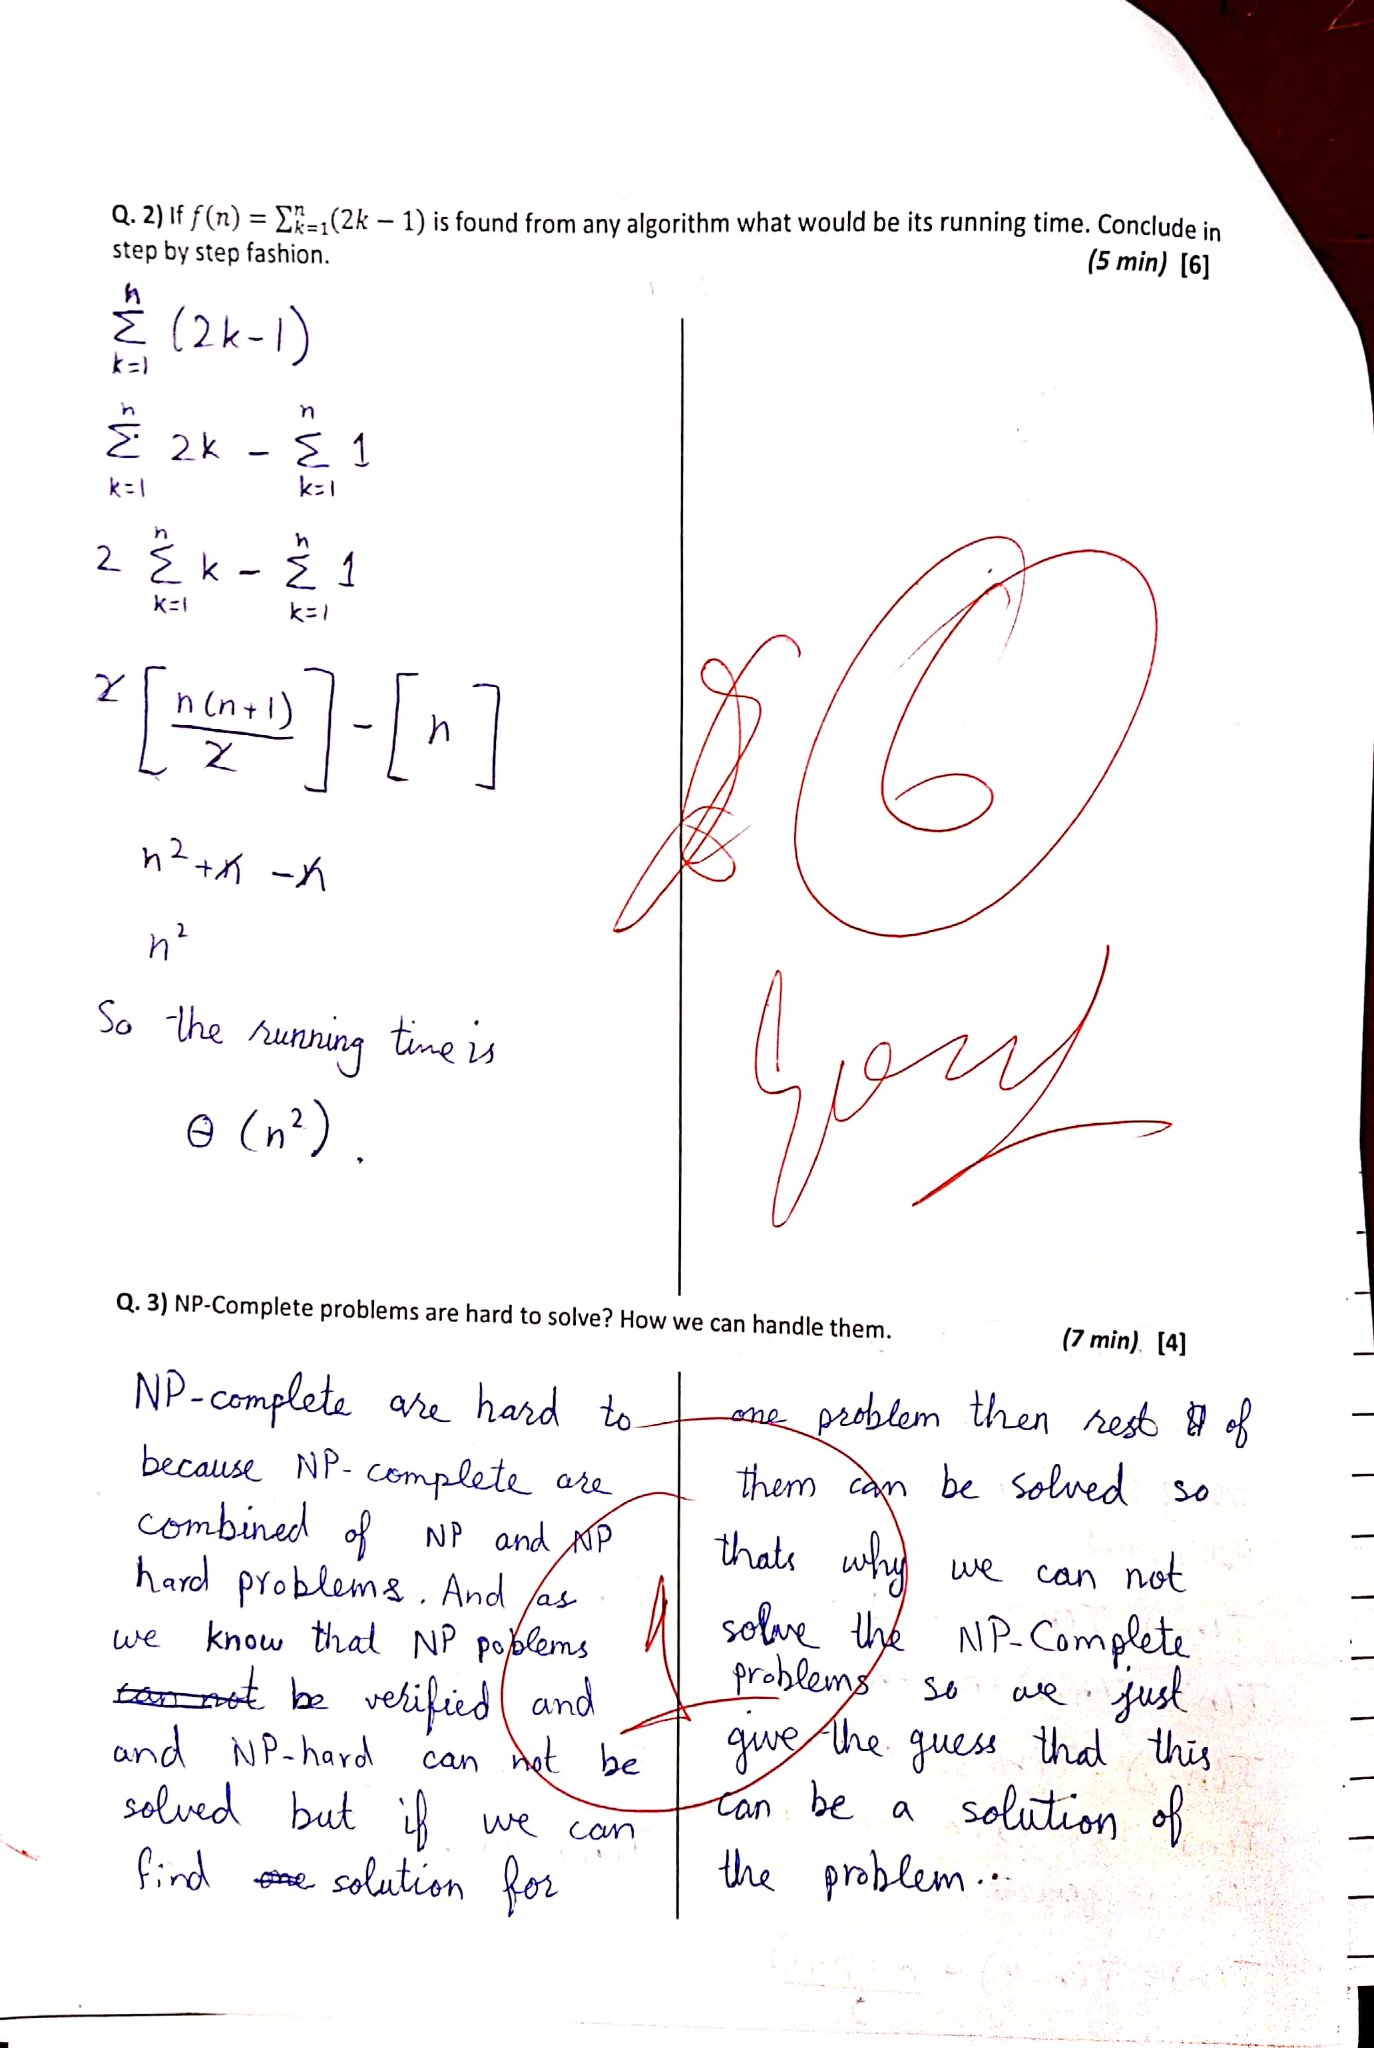 Q. 2) If f(n) = ∑ⁿₖ₌₁(2k − 1) is found from any algorithm what would be its running time. Conclude in
step by step fashion. (5 min) [6]
n
∑ (2k-1)
k=1
n n
∑ 2k - ∑ 1
k=1 k=1
n n
2 ∑ k - ∑ 1
k=1 k=1
2 [ n(n+1) / 2 ] - [ n ]
n² + n - n
n²
So the running time is
θ (n²).
6
Q. 3) NP-Complete problems are hard to solve? How we can handle them.
(7 min) [4]
NP-complete are hard to
because NP-complete are
combined of NP and NP
hard problems. And as
we know that NP poblems
can not be verified and
and NP-hard can not be
solved but if we can
find one solution for
one problem then rest of
them can be solved so
thats why we can not
solve the NP-Complete
problems so we just
give the guess that this
can be a solution of
the problem...
1